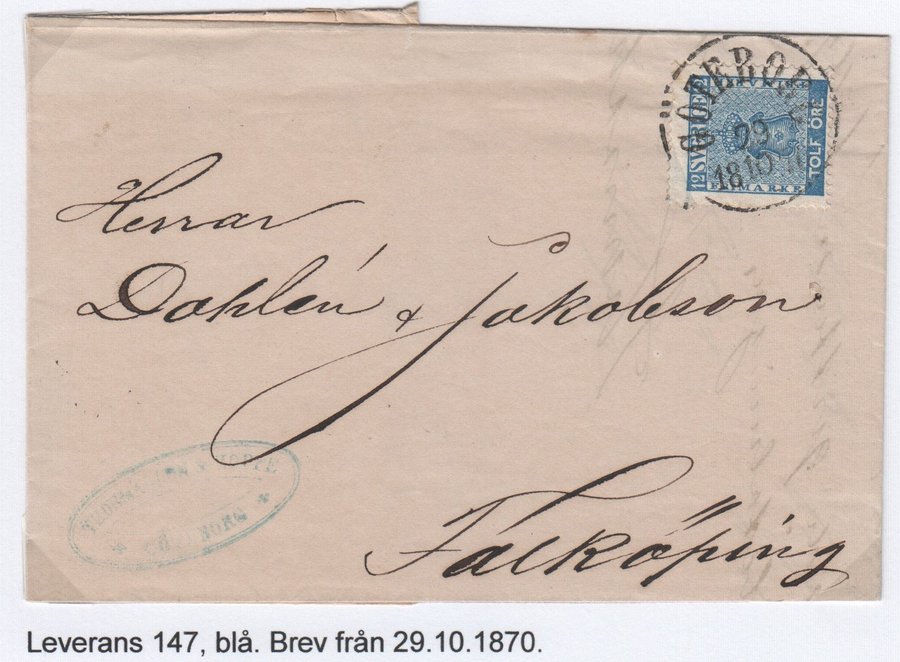 GÖTEBORG
29
18 10
SVERIGE
12
FRIMARKE
TOLF ÖRE
Herrar
Dahlén & Jakobson
Falköping
Leverans 147, blå. Brev från 29.10.1870.